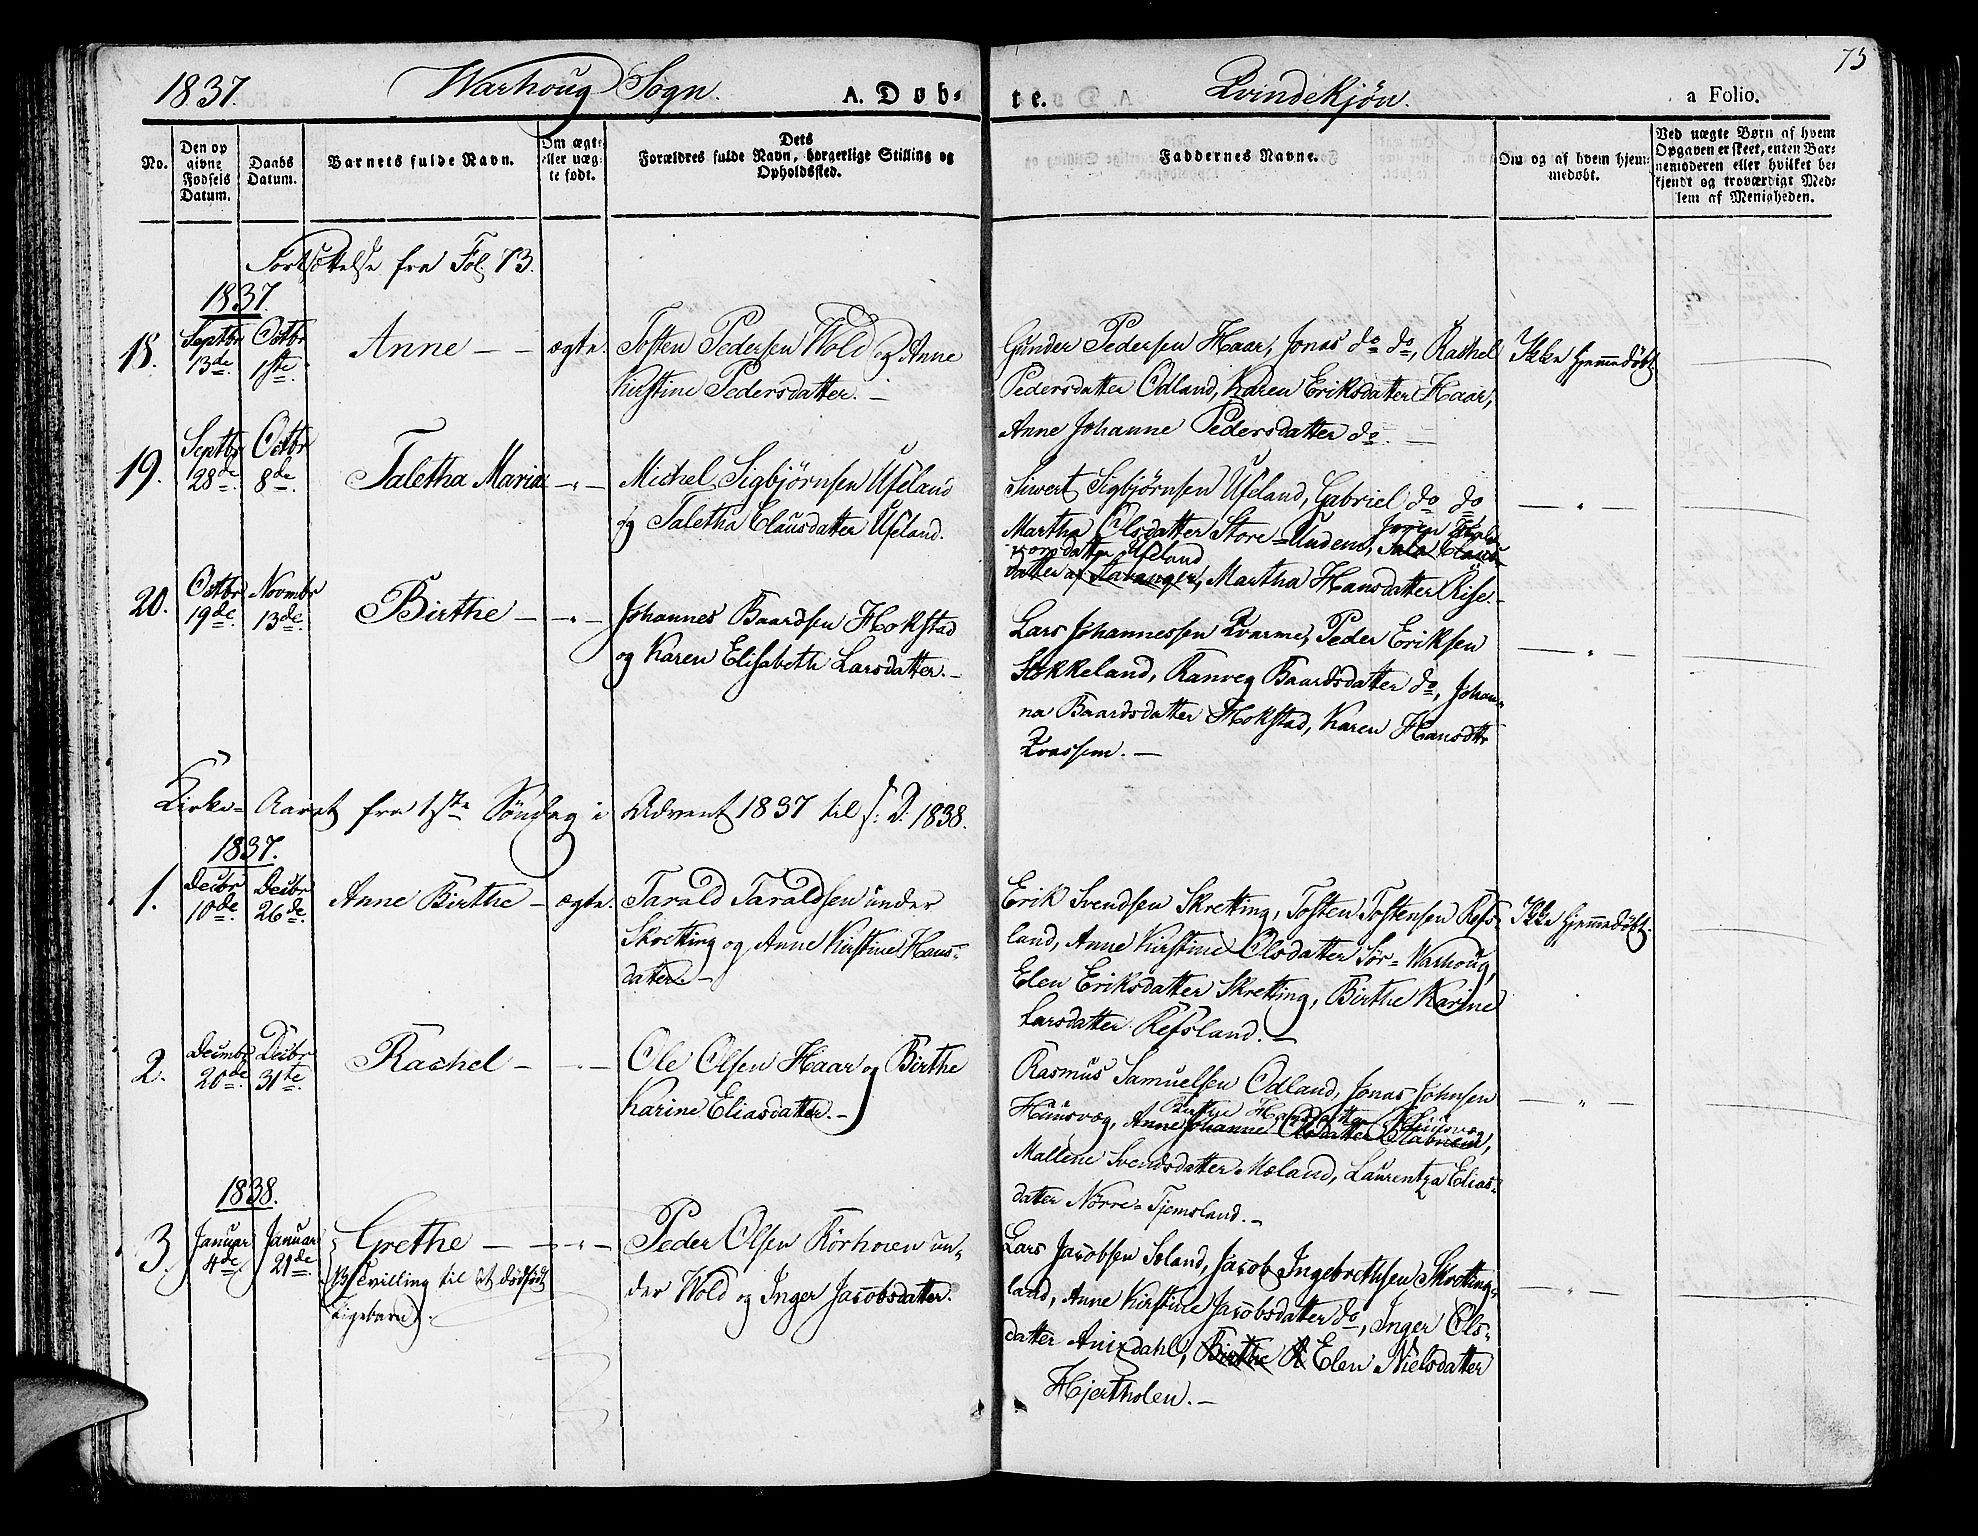 75
1837. Warhoug Sogn. A. Døb-
te. Qvindekjøn. a Folio.
No.
Den op
givne
Fødsels
Datum.
Daabs
Datum.
Barnets fulde Navn.
Om ægte
eller uæg-
te født.
Dets
Forældres fulde Navn, borgerlige Stilling og
Opholdssted.
Faddernes Navne.
Om og af hvem hjem-
medøbt.
Ved uægte Børn af hvem
Opgaven er skeet, enten Bar-
nemoderen eller hvilket be-
kjendt og troværdigt Med-
lem af Menigheden.
Fortsættelse fra Fol. 73.
1837
18. Septbr 13de Octbr 1ste Anne – – ægte. Tosten Pedersen Wold og Anne
Kirstine Pedersdatter. –
Gunder Pedersen Haar, Jonas do do, Rachel
Pedersdatter Odland, Karen Eriksdatter Haar,
Anne Johanne Pedersdatter do –
Ikke hjemmedøbt
19. Septbr 28de Octbr 8de Taletha Maria – " – Michel Sigbjørnsen Ueland
og Taletha Clausdatter Ueland.
Siwert Sigbjørnsen Ueland, Gabriel do do
Martha Olsdatter Store-Undem, Tala Claus-
datter Ueland
datter af Stavanger, Martha Hansdatter Riise. –
– " –
20. Octbr 19de Novmbr 13de Birthe – – " – Johannes Baardsen Hokstad
og Karen Elisabeth Larsdatter. –
Lars Johannessen Qvarme, Peder Eriksen
Stokkeland, Ranveg Baardsdatter do, Johan-
na Baardsdatter Hokstad, Karen Hansdttr
Qvassem. –
– " –
Kirke-Aaret fra 1ste Søndag i Advent 1837 til s. D. 1838.
1837.
1. Decbr 10de Decbr 26de Anne Birthe – ægte. Tarald Taraldsen under
Skretting og Anne Kirstine Hans-
datter. –
Erik Svendsen Skretting, Tosten Tostensen Refs-
land, Anne Kirstine Olsdatter Sør-Warhoug,
Elen Eriksdatter Skretting, Birthe Karine
Larsdatter Refsland. –
Ikke hjemmedøbt.
2. Decmbr 20de Decbr 31te Rachel – – " – Ole Olsen Haar og Birthe
Karine Eliasdatter. –
Rasmus Samuelsen Odland, Jonas Johnsen
Birthe Hansdatter Huusvæg,
Huusvæg, Anne Johanne Olsdatter
Mallene Svendsdatter Mæland, Laurentza Elias-
datter Nørre-Tjemsland. –
– " –
1838.
3. Januar 4de Januar 21de Grethe – – " – Peder Olsen Rørhoien un-
(Tvilling til et dødfødt
Pigebarn).
der Wold og Inger Jacobsdatter.
Lars Jacobsen Soland, Jacob Ingebrethsen Skretting-
land, Anne Kirstine Jacobsdatter do, Inger Ols-
datter Anixdahl, Birthe A Elen Nielsdatter
Hjertholen. –
– " –